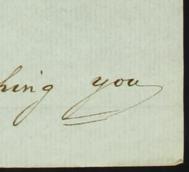 hing you